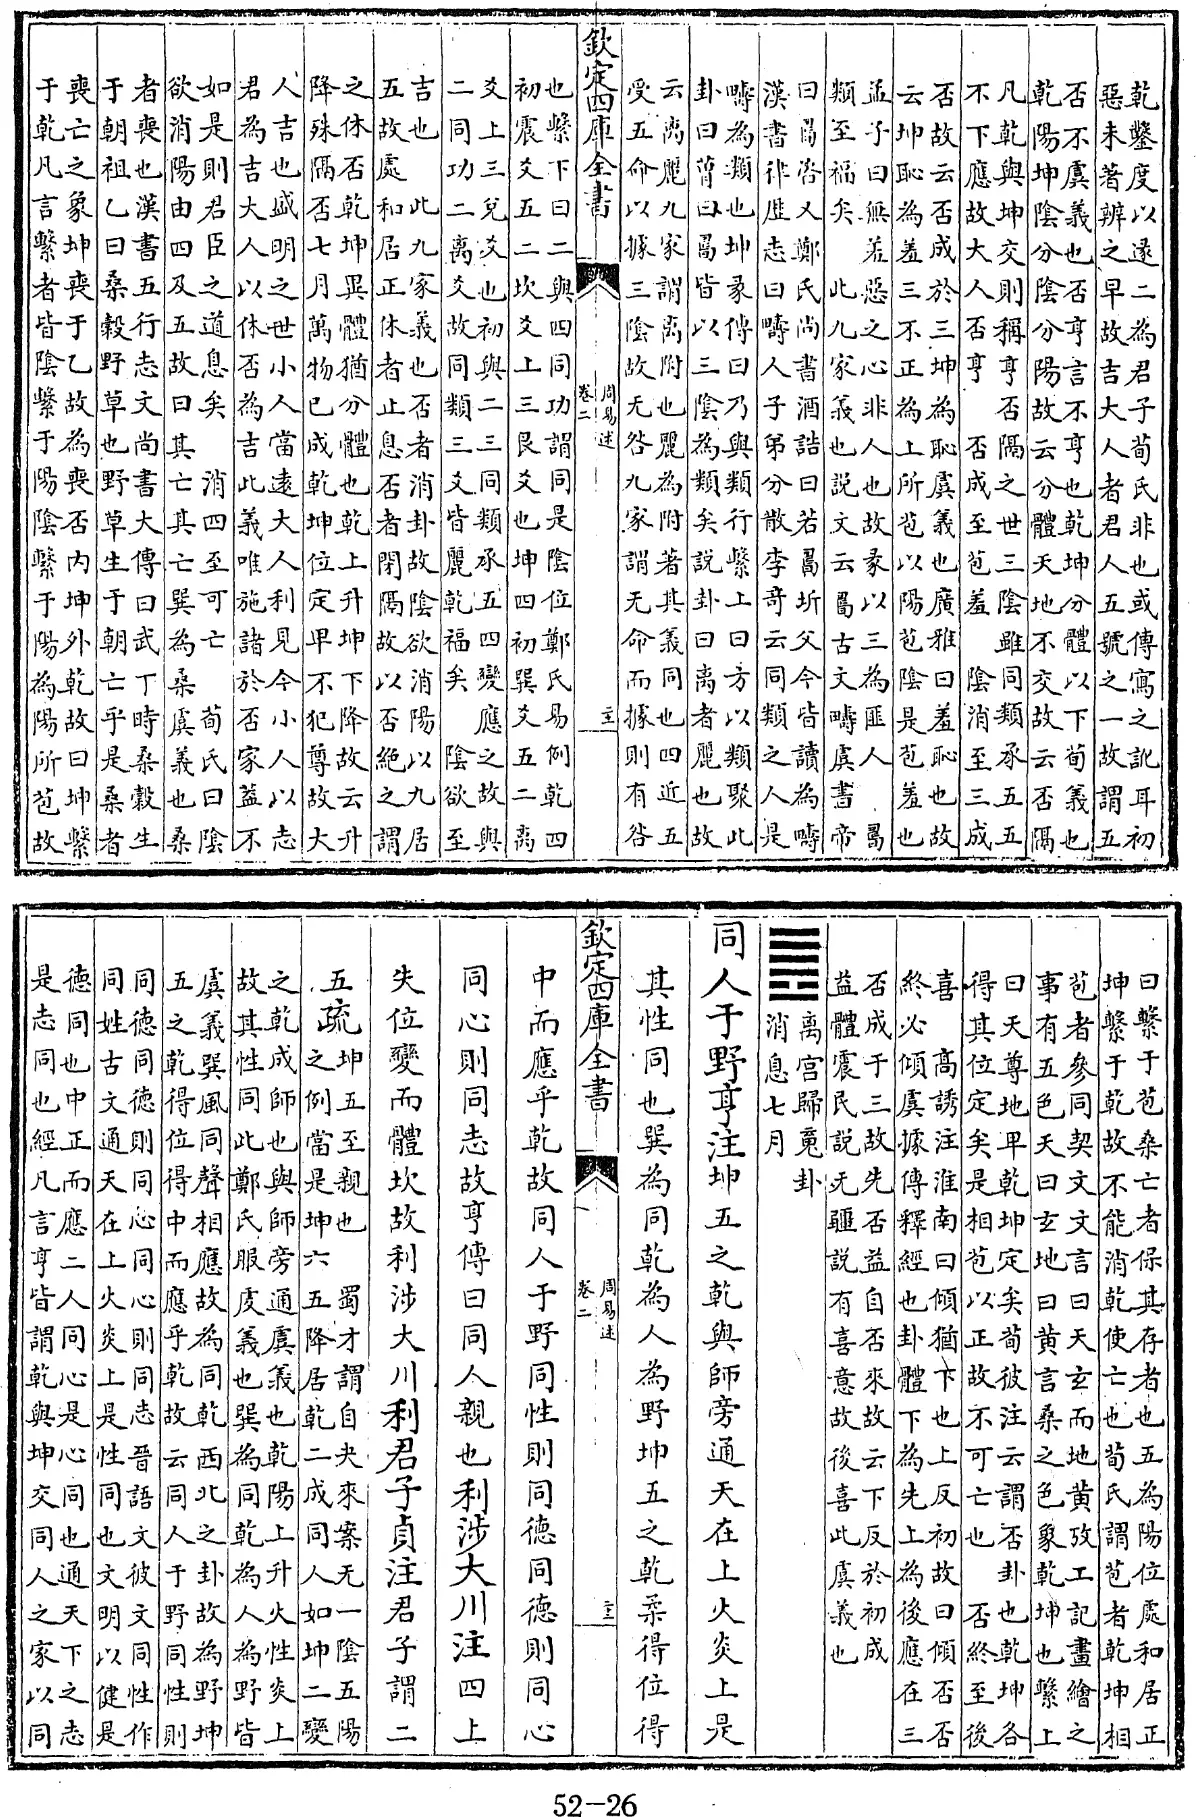 乾鑿度以遂二為君子荀氏非也或傳寫之訛耳初
惡未著辨之早故吉大人者君人五號之一故謂五
否不虞義也否亨言不亨也乾坤分體以下荀義也
乾陽坤陰分陰分陽故云分體天地不交故云否隔
凡乾與坤交則稱亨否隔之世三陰雖同類承五五
不下應故大人否亨　否成至苞羞　陰消至三成
否故云否成於三坤為恥虞義也廣雅曰羞恥也故
云坤恥為羞三不正為上所苞以陽苞陰是苞羞也
孟子曰無羞惡之心非人也故彖以三為匪人　𠷎
類至福矣　此九家義也説文云𠷎古文疇虞書帝
曰𠷎咨又鄭氏尚書酒誥曰若𠷎圻父今皆讀為疇
漢書律歴志曰疇人子弟分散李竒云同類之人是
疇為類也坤彖傳曰乃與類行繫上曰方以類聚此
卦曰曰𠷎皆以三陰為類矣説卦曰离者麗也故
云离麗九家謂离附也麗為附著其義同也四近五
受五命以據三陰故无咎九家謂无命而據則有咎
欽定四庫全書
周易述
卷二
也繫下曰二與四同功謂同是陰位鄭氏易例乾四
初震爻五二坎爻上三艮爻也坤四初巽爻五二离
爻上三兌爻也初與二三同類承五四變應之故與
二同功二离爻故同類三爻皆麗乾福矣　陰欲至
吉也　此九家義也否者消卦故陰欲消陽以九居
五故處和居正休者止息否者閉隔故以否絶之謂
之休否乾坤異體猶分體也乾上升坤下降故云升
降殊隔否七月萬物已成乾坤位定卑不犯尊故大
人吉也盛明之世小人當遠大人利見今小人以志
君為吉大人以休否為吉此義唯施諸於否家葢不
如是則君臣之道息矣　消四至可亡　荀氏曰陰
欲消陽由四及五故曰其亡其亡巽為桑虞義也桑
者喪也漢書五行志文尚書大傳曰武丁時桑榖生
于朝祖乙曰桑榖野草也野草生于朝亡乎是桑者
喪亡之象坤喪于乙故為喪否内坤外乾故曰坤繫
于乾凡言繫者皆陰繫于陽陰繫于陽為陽所苞故
曰繫于苞桑亡者保其存者也五為陽位處和居正
坤繫于乾故不能消乾使亡也荀氏謂苞者乾坤相
苞者參同契文文言曰天玄而地黄攷工記畫繪之
事有五色天曰玄地曰黄言桑之色象乾坤也繫上
曰天尊地卑乾坤定矣荀彼注云謂否卦也乾坤各
得其位定矣是相苞以正故不可亡也　否終至後
喜　高誘注淮南曰傾猶下也上反初故曰傾否否
終必傾虞據傳釋經也卦體下為先上為後應在三
否成于三故先否益自否來故云下反於初成
益體震民説无疆説有喜意故後喜此虞義也
离宫歸䰟卦
消息七月
同人于野亨注坤五之乾與師旁通天在上火炎上是
其性同也巽為同乾為人為野坤五之乾柔得位得
欽定四庫全書
周易述
卷二
中而應乎乾故同人于野同性則同德同德則同心
同心則同志故亨傳曰同人親也利涉大川注四上
失位變而體坎故利涉大川利君子貞注君子謂二
五疏坤五至親也　蜀才謂自夬來案无一陰五陽
之例當是坤六五降居乾二成同人如坤二變
之乾成師也與師旁通虞義也乾陽上升火性炎上
故其性同此鄭氏服䖍義也巽為同乾為人為野皆
虞義巽風同聲相應故為同乾西北之卦故為野坤
五之乾得位得中而應乎乾故云同人于野同性則
同德同德則同心同心則同志晉語文彼文同性作
同姓古文通天在上火炎上是性同也文明以健是
德同也中正而應二人同心是心同也通天下之志
是志同也經凡言亨皆謂乾與坤交同人之家以同
52-26